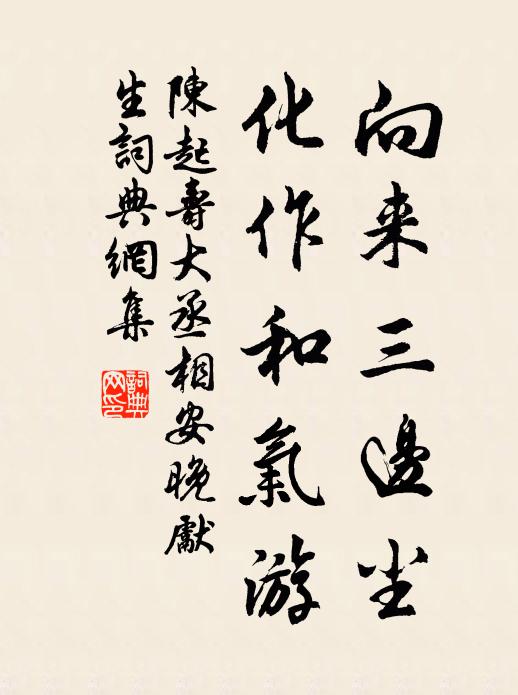 向来三邊尘
化作和氣游
陳起壽大丞相安晚獻
生詞典網集
詞典
网印